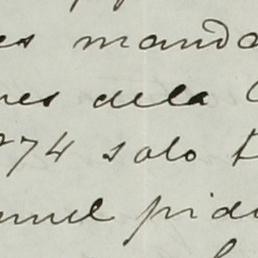 es manda
nes dela
874 solo
anuel pid